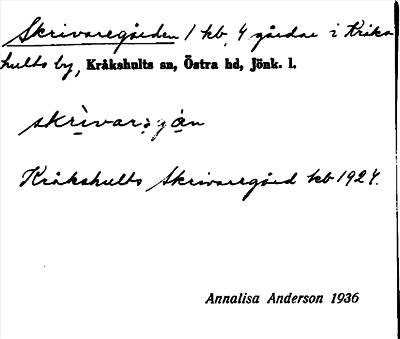 Skrivaregården 1 kb, 4 gårdar i Kråks-
hults by, Kråkshults sn, Östra hd, Jönk. l.
skrìvarəgɑ̣n
Kråkshults Skrivaregård kb 1927.
Annalisa Anderson 1936